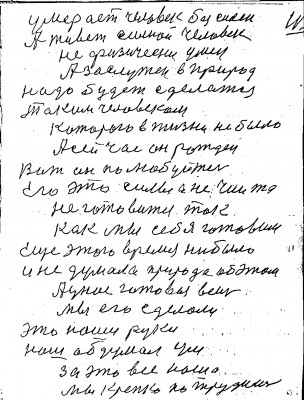 умерает человек без силы
А живет силной человек
не физически умен
А заслужен в природ
надо будет сделатся
таким человеком
которого в жизни небыло
А сей час он рожден
Вот он полюбуйтес
Его это силы а не чи
не готовится так
как мы себя готовим
Еще этого время небыло
и не думала природа об этом
А умное готовая вещ
мы его сделали
это наши руки
наш обдумал ум
за это все наше
мы крепко потрудились